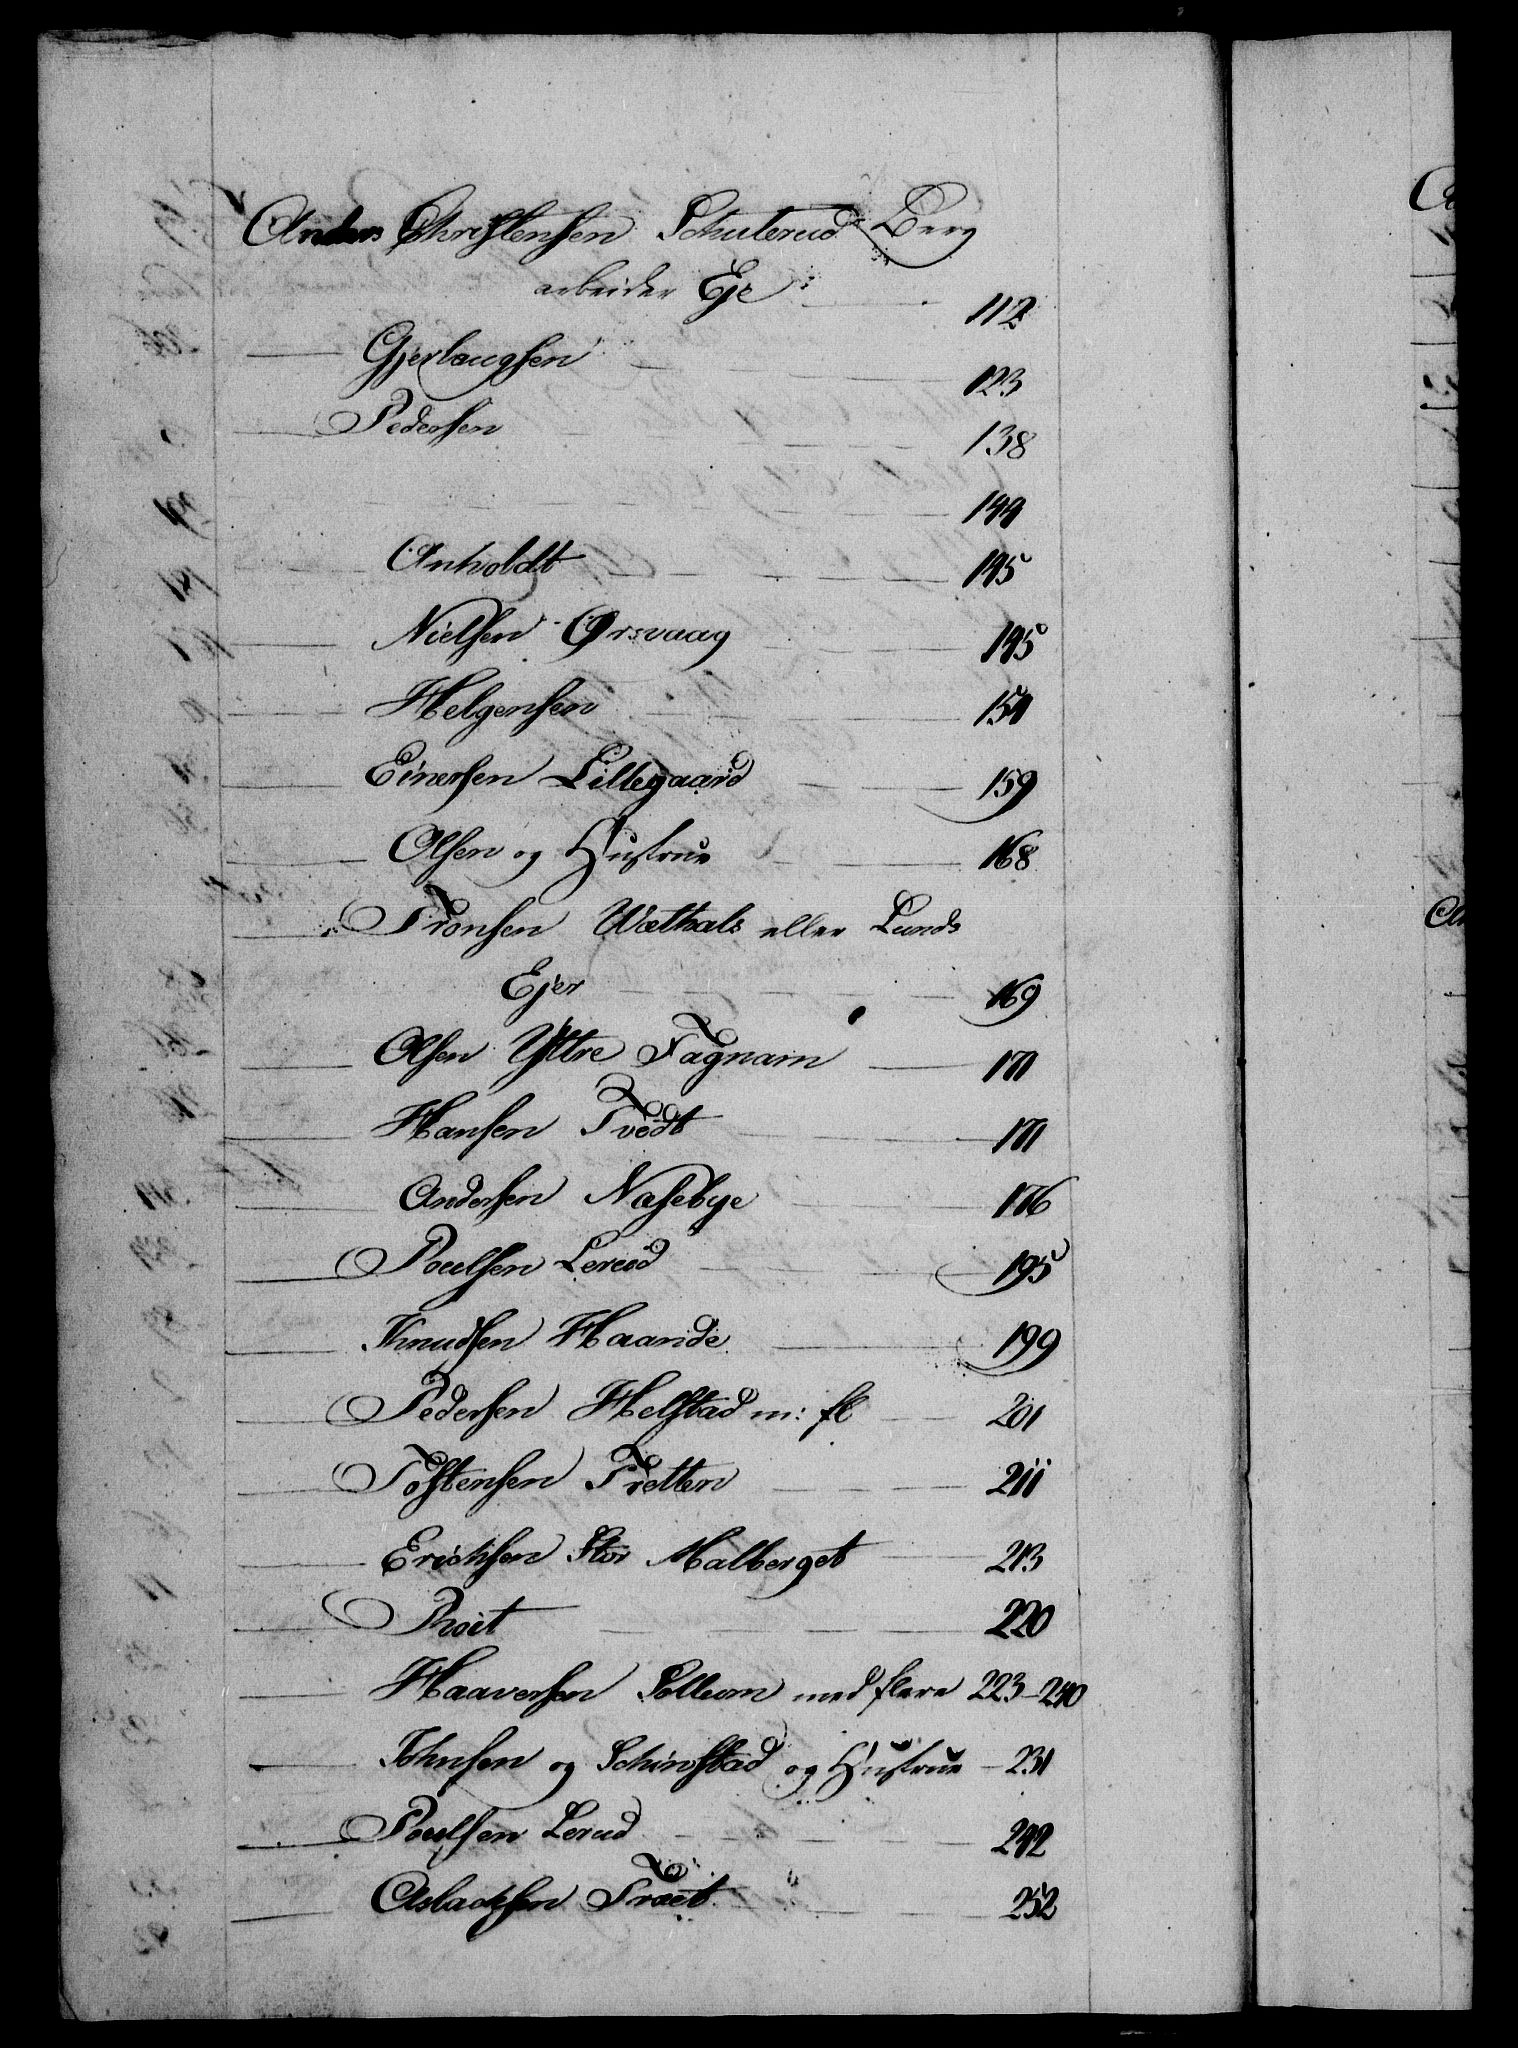 Anders Christensen Schulerud Berg
arbeider Eje 112
— Gjerlaugsen 123
— Pedersen 138
144
— Anholdt 145
Nielsen Orsvaag 145
— Helgensen 154
— Einersen Lillegaard 159
— Olsen og Hustrue 168
— Tronsen Wæthals eller Lunds
Ejer 169
— Olsen Yttre Fagnam 171
— Hansen Tvedt 171
— Andersen Næsebye 176
— Poulsen Lerud 195
— Knudsen Haande 199
— Pedersen Helstad m: fl 201
— Tostensen Tretten 211
— Erichsen Stor Malberget 213
— Proet 220
— Haaversen Sollum med flere 223-240
— Johnsen og Schinstad og Hustrue - 231
— Poulsen Lerud 242
— Aslachsen Træet 252